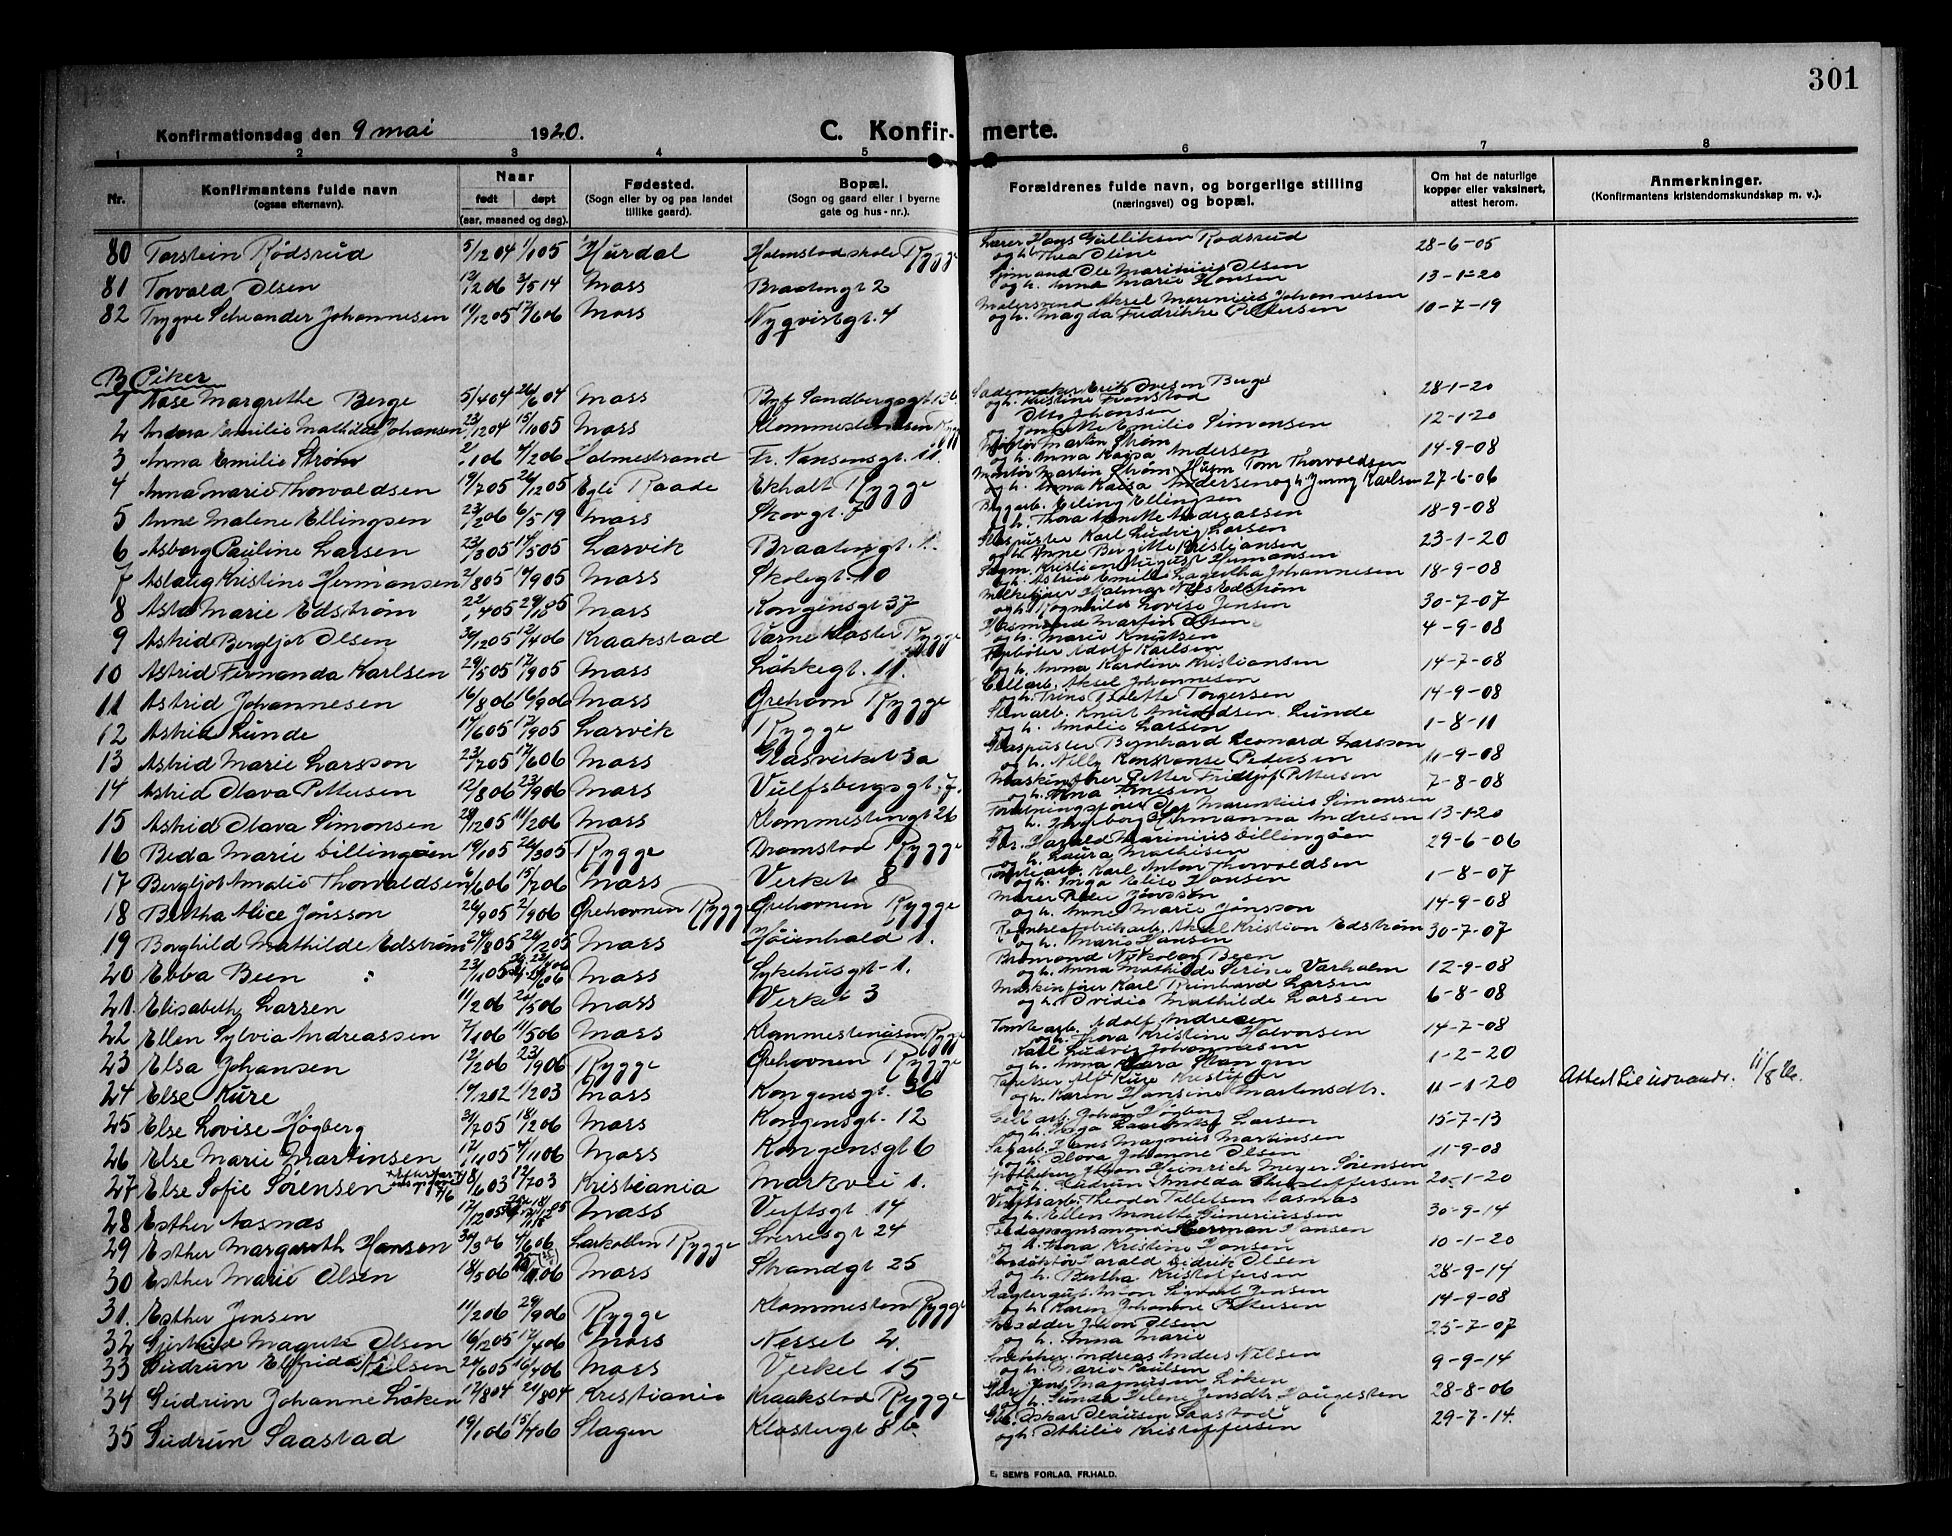 301
Konfirmationsdag den 9 mai 1920.
C. Konfirmerte.
1 2 3 4 5 6 7 8
Nr. Konfirmantens fulde navn (ogsaa efternavn). Naar født døpt (aar, maaned og dag). Fødested. (Sogn eller by og paa landet tillike gaard). Bopæl. (Sogn og gaard eller i byerne gate og hus-nr.). Forældrenes fulde navn, og borgerlige stilling (næringsvei) og bopæl. Om hat de naturlige kopper eller vaksinert, attest herom. Anmerkninger. (Konfirmantens kristendomskundskap m. v.).
80 Torstein Rødsrud 5/12 04 1/1 05 Hurdal Holmstad skole Rygge Lærer Hans Gulliksen Rødsrud og h. Thea Oline 28-6-05
81 Torvald Olsen 12/2 06 3/5 14 Moss Braatengt 2 Sjømand Ole Marinius Olsen og h. Anna Marie Hansen 13-1-20
82 Trygve Johannesen 11/12 05 17/6 06 Moss Nyqvistgt. 4 Malersvend Aksel Marenius Johannesen og h. Magda Fredrikke Pettersen 10-7-19
B Piker
1 Aase Margrethe Berge 5/4 04 26/6 04 Moss Sandbergsgt 13b. Erik Iveson Berge og h. Kristine 28-1-20
2 Andora Emilie Mathilde Johansen 23/12 04 15/10 05 Moss Klommesteinsen Rygge Otto Johansen og Emilie Simonsen 12-1-20
3 Anna Emilie Strøm 2/1 06 4/2 06 Holmestrand Fr. Nansensgt. 11 Martin Strøm og h. Anna Kaisa Andersen 14-9-08
4 Anna Marie Thorvaldsen 19/7 05 26/12 05 Raade Ekholt Rygge Martin Strøm Husm Tom Thorvaldsen og h. Anna Kaisa Andersen og h. Jenny Karlsen 27-6-06
5 Anne Malene Ellingsen 23/2 06 6/5 19 Moss Skovgt. Byggarb. Elling Ellingsen og h. Thora Anette Andreassen 18-9-08
6 Asborg Pauline Larsen 23/3 05 14/5 05 Larvik Braatengt. Glaspuster Karl Ludvig Larsen og h. Anne Bergitte Kristiansen 23-1-20
7 Aslaug Kristine Hermansen 2/8 05 17/9 05 Moss Skolegt. 10 Kristian August Hermansen og h. Astrid Emilie Lagertha Johannesen 18-9-08
8 Asta Marie Edstrøm 22/4 05 29/8 05 Moss Kongensgt 37 Hjalmar Edstrøm og h. Ragnhild Lovise Jensen 30-7-07
9 Astrid Bergljot Olsen 30/12 05 12/4 06 Kraakstad Værne Kloster Rygge Martin Olsen og h. Marie Knutsen 4-9-08
10 Astrid Fernanda Karlsen 29/5 05 17/9 05 Moss Løkkegt. 11. Fyrbøter Adolf Karlsen og h. Anna Karoline Kristiansen 14-7-08
11 Astrid Johannesen 16/8 06 16/9 06 Moss Ørehavn Rygge Cellarb. Aksel Johannesen og h. Trine Torgersen 14-9-08
12 Astrid Lunde 17/6 05 17/9 05 Larvik Rygge Stenarb. Knut Amundsen Lunde og h. Amalie Larsen 1-8-11
13 Astrid Marie Larsson 23/7 05 17/6 06 Moss Glasverket 3a Glaspuster Bernhard Leonard Larsson og h. Nelly Konstanse Petersen 11-9-08
14 Astrid Olava Pettersen 12/8 06 23/9 06 Moss Vulfsbergsgt. 7. Maskinfører Petter Fridtjof Pettersen og h. Anna Arnesen 7-8-08
15 Astrid Olava Simonsen 28/12 05 11/2 06 Moss Klommestengt 26 Forretningsfører Olaf Marentius Simonsen og h. Ingeborg Hermanna Andresen 13-1-20
16 Beda Marie Billingøen 19/1 05 26/3 05 Rygge Dramstad Rygge Harald Marinius Billingøen og h. Laura Mathisen 29-6-06
17 Bergljot Amalie Thorvaldsen 6/6 06 15/7 06 Moss Verket 8 Tomtearb. Karl Anton Thorvaldsen og h. Inga Elise Hansen 1-8-07
18 Bertha Alice Jønsson 26/9 05 2/9 06 Ørehavnen Rygge Ørehavnen Rygge Murer Peder Jønsson og h. Anne Marie Jønsson 14-9-08
19 Borghild Mathilde Edstrøm 24/8 05 26/2 05 Moss Høienhald 1. Aksel Kristian Edstrøm og h. Marie Hansen 30-7-07
20 Ebba Been 23/1 05 Moss Sykehusgt-1. Nikolay Been og h. Anna Mathilde Serine Varholm 12-9-08
21. Elisabeth Larsen 11/2 06 20/5 06 Moss Verket 3 Maskinfører Karl Reinhard Larsen og h. Ovidie Mathilde Larsen 6-8-08
22 Ellen Sylvia Andreassen 7/1 06 11/5 06 Moss Klommesteinsen Rygge Tomtearb. Adolf Andresen og h. Thora Kristine Halvorsen 14-7-08
23 Elsa Johansen 12/2 06 23/9 06 Rygge Ørehavnen Rygge Karl Ludvig Johannesen og h. Anna Clara Stangen 1-2-20
24 Else Kure 17/12 02 1/12 03 Moss Kongensgt. 36 Tapetser Alf Kure Kristoffer og h. Karen Hansine Martensdtr. 11-1-20 Attest til utvandr. 11/8
25 Else Lovise Høgberg 31/7 05 18/2 06 Moss Kongensgt- 12 Cellarb. Johan Høgberg og h. Helga Larsen 15-7-13
26 Else Marie Martinsen 12/11 05 4/11 06 Moss Kongensgt 6 Hans Magnus Martinsen og h. Olava Johanne Olsen 11-9-08
27 Else Sofie Sørensen 18/6 03 12/7 03 Kristiania Markvei 1. Johan Heinrich Meyer Sørensen og h. Gudrun Arnolda Kristoffersen 20-1-20
28 Esther Aasnæs 17/12 05 Moss Verftsgt. 14 Verftsarb. Theodor Tillefsen Aasnæs og h. Ellen Annette Guneriussen 30-9-14
29 Esther Margareth Hansen 30/3 06 4/6 06 Larkollen Rygge Sverresgt 24 Herman Hansen og h. Thora Kristine Hansen 10-1-20
30 Esther Marie Olsen 18/5 06 Moss Strandgt 25 Harald Olsen og h. Bertha Kristoffersen 28-9-14
31. Esther Jensen 11/2 06 29/9 06 Rygge Klommesten Rygge Sigvart Jensen og h. Karen Johanne Pettersen 14-9-08
32 Olsen 16/12 05 17/4 06 Moss Nesset 2 Johan Olsen og h. Anna Marie 25-7-07
33 Gudrun Elfrida Nilsen 24/6 05 16/4 06 Moss Verket 15 Andreas Anders Nilsen og h. Marie Paulsen 9-9-14
34 Gudrun Johanne Løken 17/8 04 21/8 04 Kristiania Kraakstad Rygge Jens Magnussen Løken og h. Gunda Helene Jensdtr Haugesten 28-8-06
35 Gudrun Saastad 19/1 06 15/4 06 Slagen Klostergt 8b Oskar Olausen Saastad og h. Othilie Kristoffersen 29-7-14.
E. SEM'S FORLAG, FR.HALD.